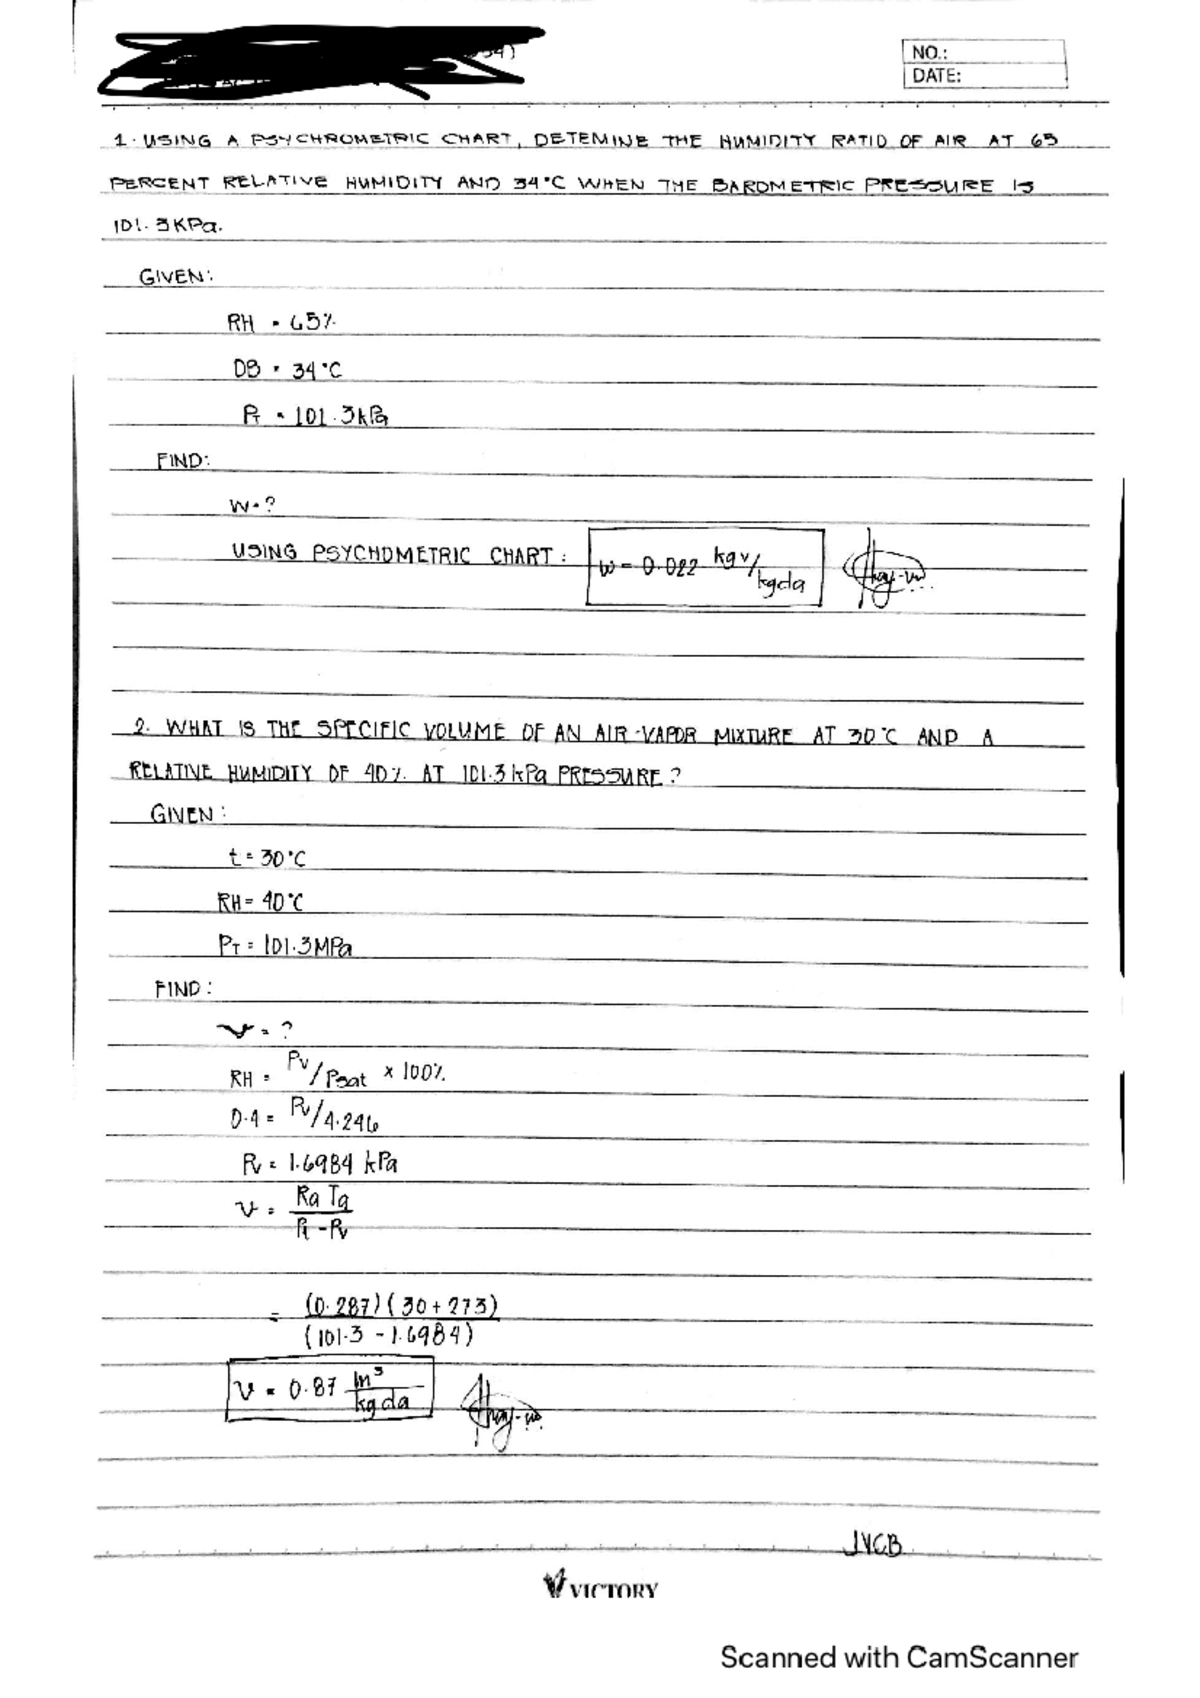 34)
NO.:
DATE:
1. USING A PSYCHROMETRIC CHART, DETEMINE THE HUMIDITY RATIO OF AIR AT 65
PERCENT RELATIVE HUMIDITY AND 34°C WHEN THE BAROMETRIC PRESSURE IS
101.3KPa.
GIVEN:
RH = 65%
DB = 34°C
PT = 101.3kPa
FIND:
W=?
USING PSYCHOMETRIC CHART: W = 0.022 kgv/kgda
2. WHAT IS THE SPECIFIC VOLUME OF AN AIR-VAPOR MIXTURE AT 30°C AND A
RELATIVE HUMIDITY OF 40% AT 101.3kPa PRESSURE?
GIVEN:
t = 30°C
RH = 40°C
PT = 101.3MPa
FIND:
v = ?
RH = Pv/Psat x 100%
0.4 = Pv/4.246
Pv = 1.6984 kPa
v = Ra Ta
Pt - Pv
= (0.287)(30+273)
(101.3 - 1.6984)
v = 0.87 m³/kgda
JVCB
VICTORY
Scanned with CamScanner